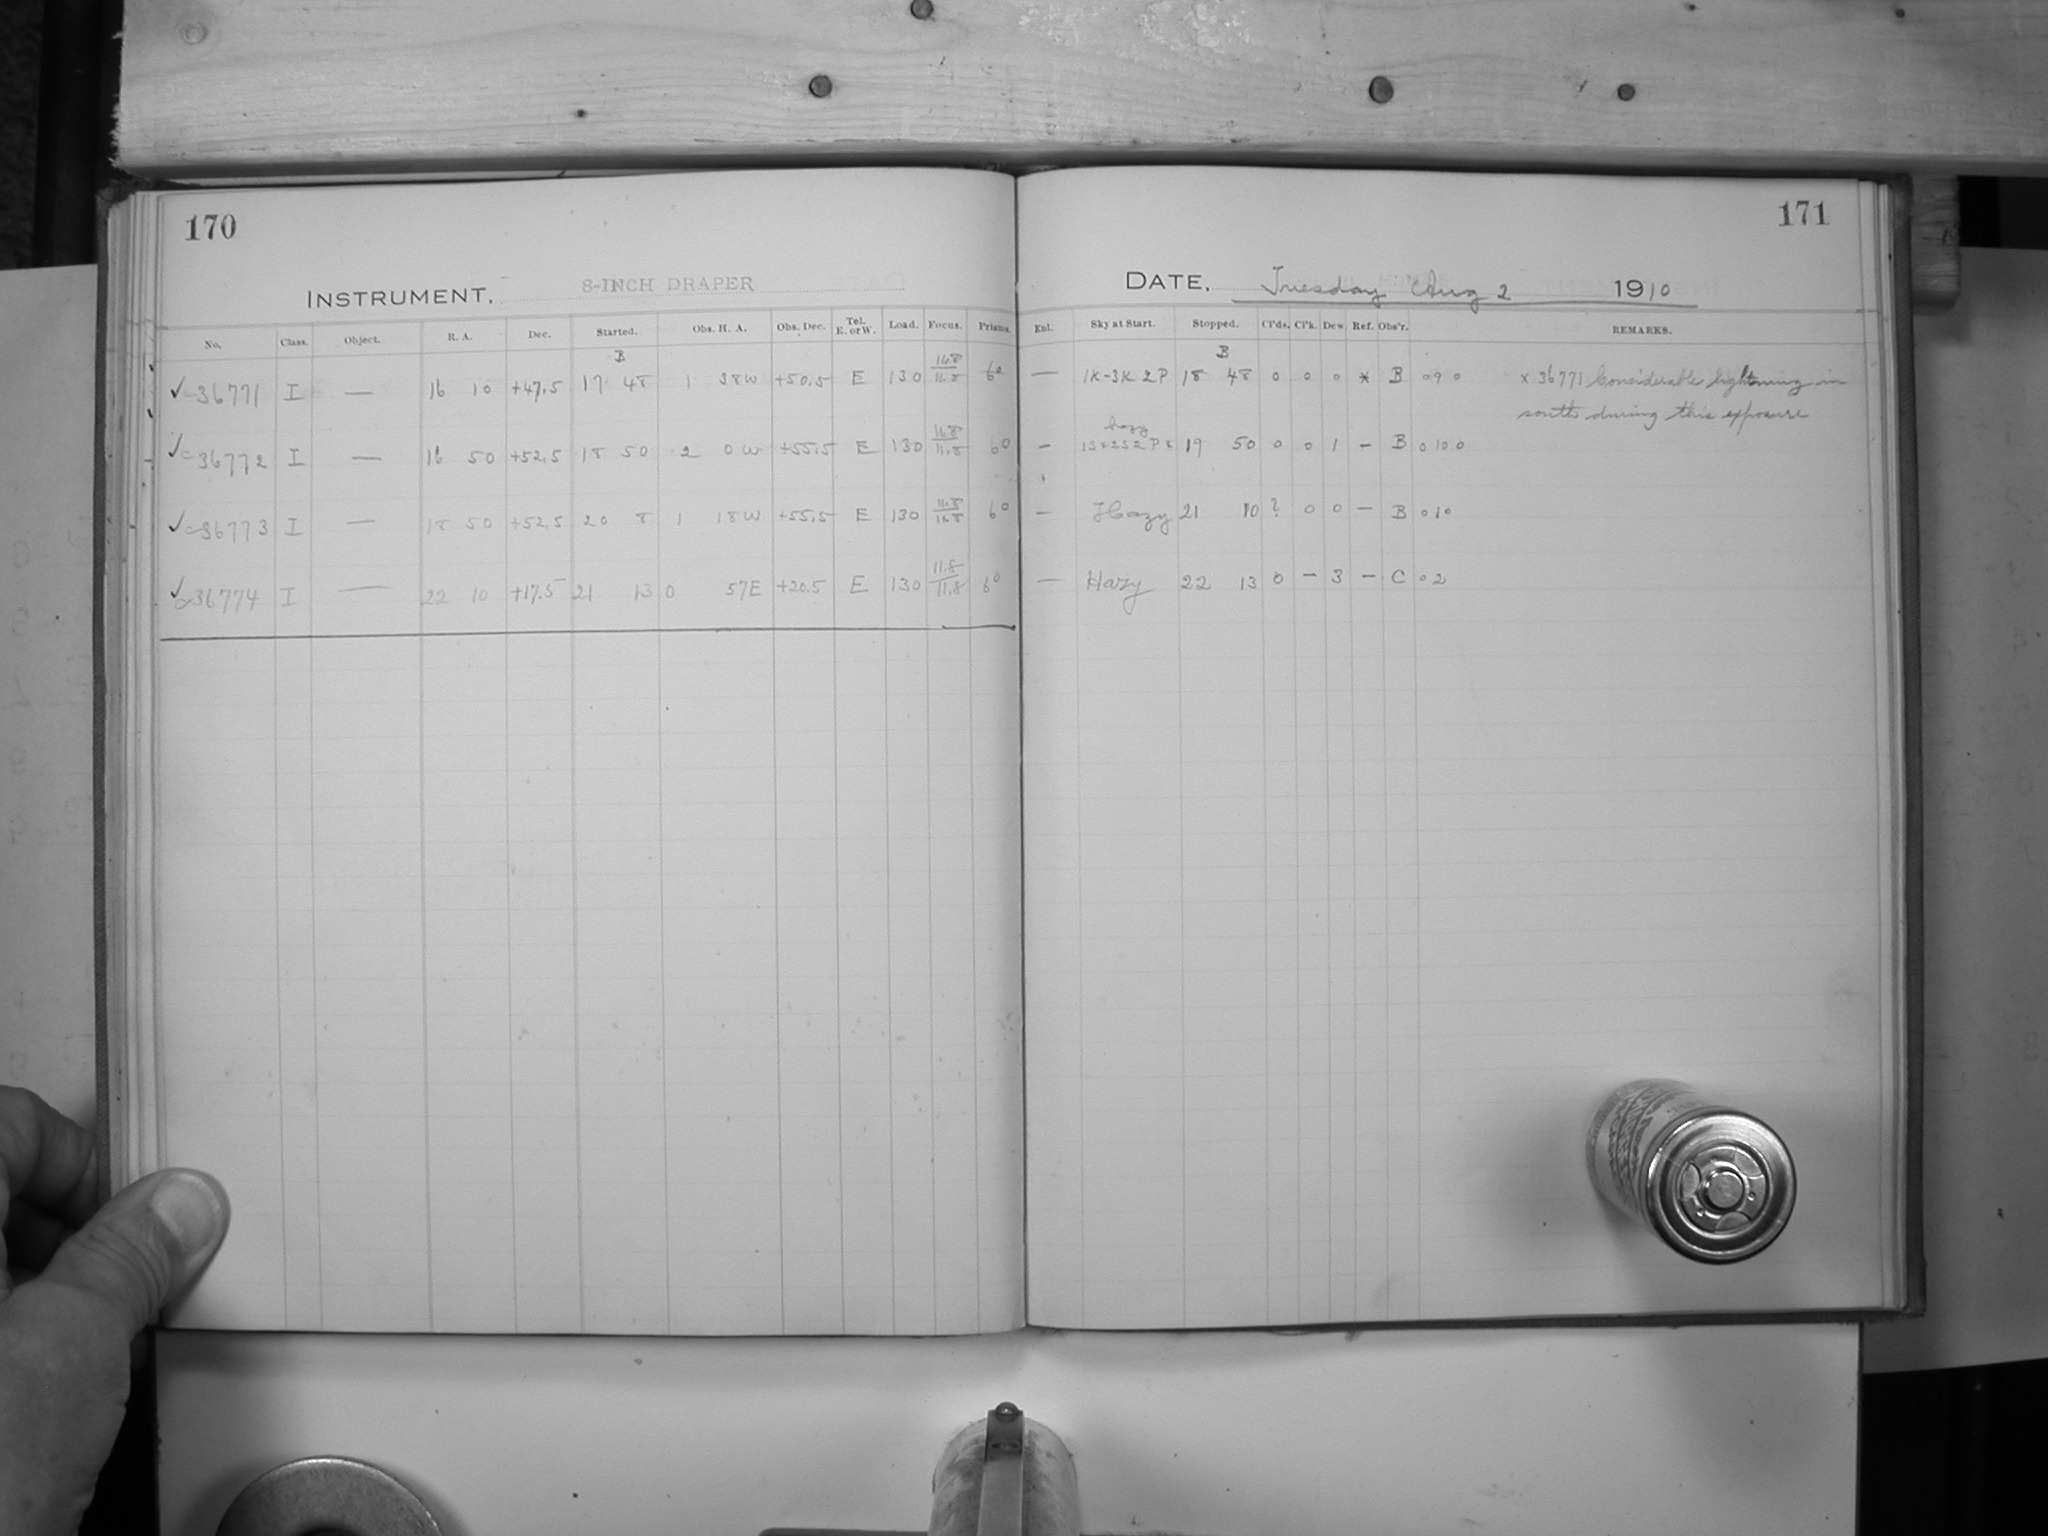 170
INSTRUMENT. 8-INCH DRAPER
No. Class. Object. R. A. Dec. Started. Obs. H. A. Obs. Dec. Tel. E. or W. Load. Focus. Prisms.
B
36771 I — 16 10 +47.5 17 48 1 38W +50.5 E 130 11.8 6°
36772 I — 16 50 +52.5 18 50 2 0W +55.5 E 130 11.8 6°
36773 I — 18 50 +52.5 20 8 1 18W +55.5 E 130 11.8/11.8 6°
36774 I — 22 10 +17.5 21 13 0 57E +20.5 E 130 11.8/11.8 6°
171
DATE. Tuesday Aug 2 1910
Enl. Sky at Start. Stopped. Cl'ds. Cl'k. Dew. Ref. Obs'r. REMARKS.
B
— 1K-3K 2P 18 48 0 0 0 * B 090 x 36771 Considerable lightning in
south during this exposure
hazy
— 19 50 0 0 1 — B 0100
— Hazy 21 10 ? 0 0 — B 010
— Hazy 22 13 0 — 3 — C 02